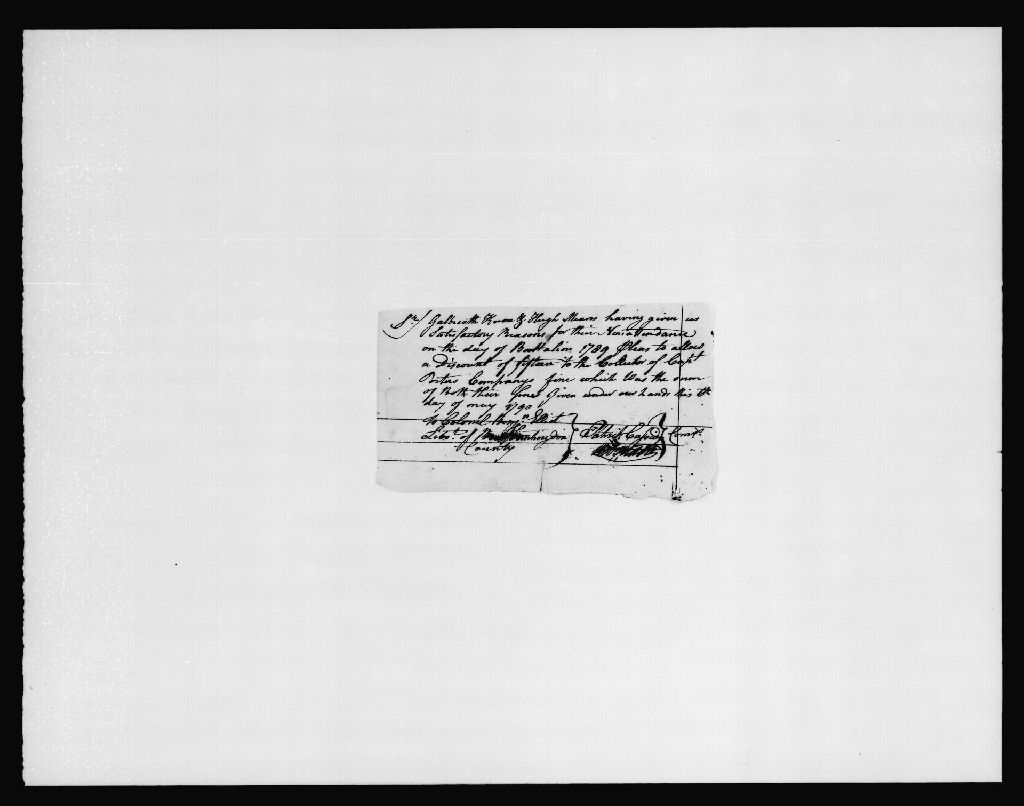 Sr/ Galbreath & Hugh Mears having given us
Satisfactory Reasons for their Nonattendance
on the day of Battalion 1789 Pleas to allow
a Discount of fifteen to the Collector of Capt
Company fine which was the sum
of Both their fines Given under our hands this
day of may 1790
To Colonel Benjn Elliot
Lieut. of Huntingdon
County
Patrick Comt.